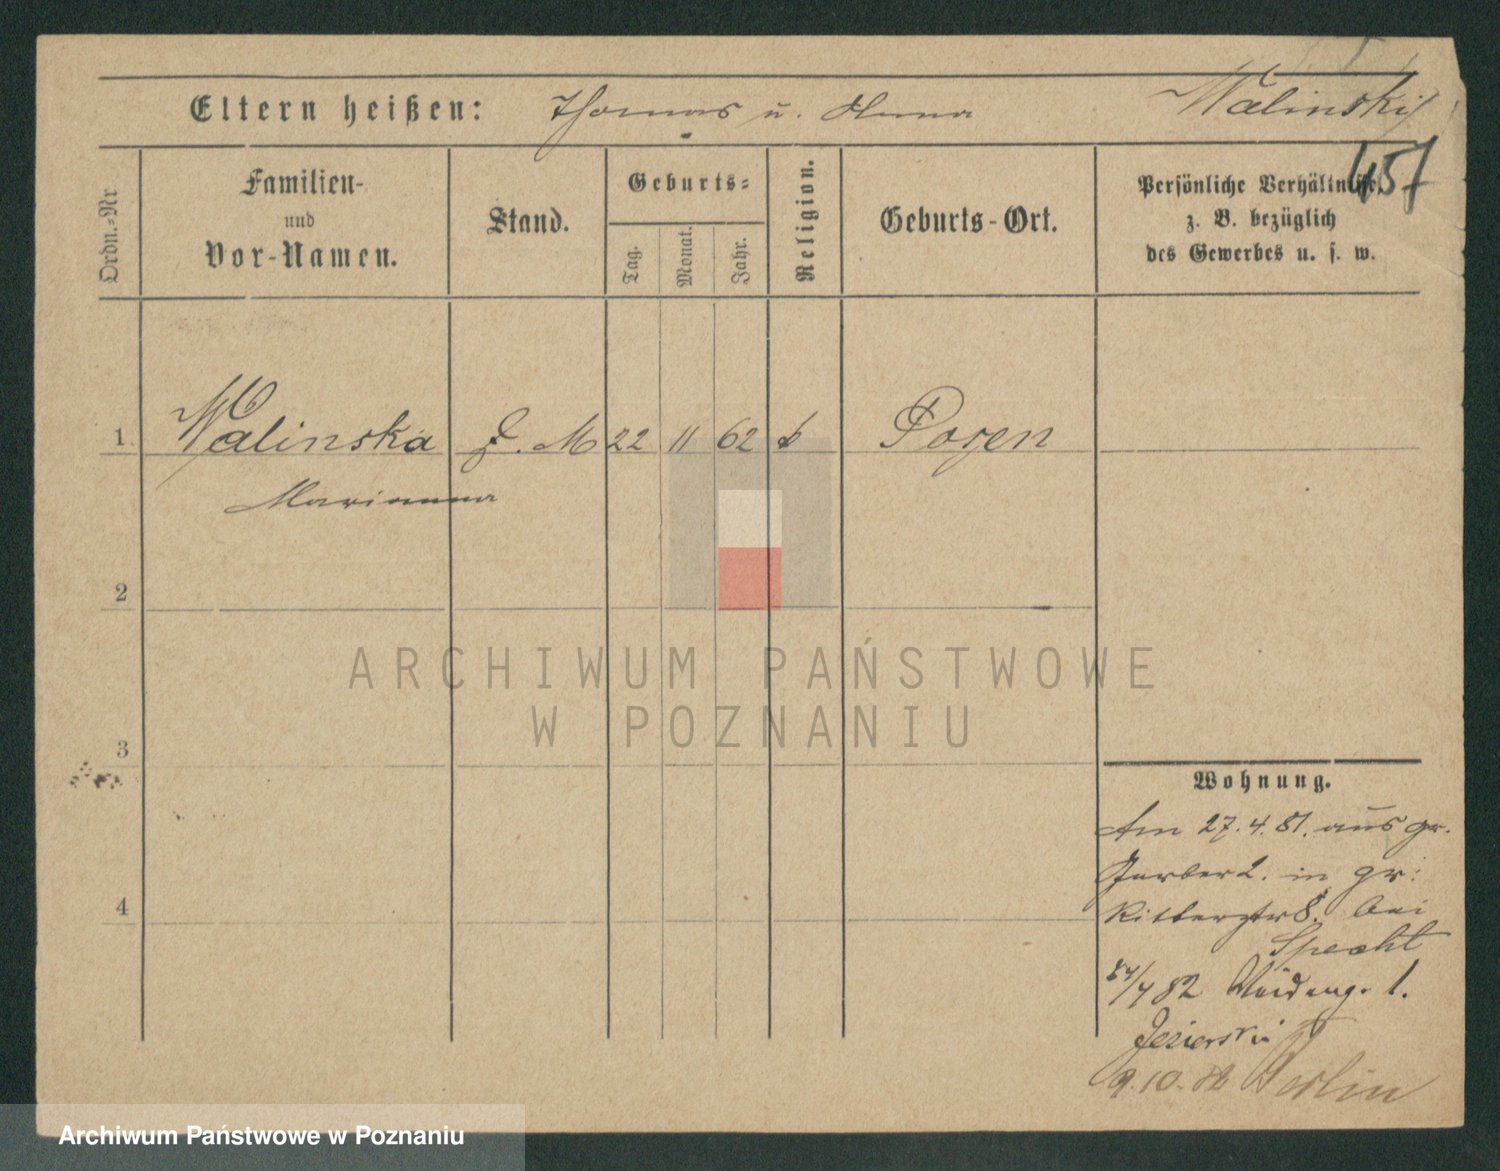 Eltern heißen: Thomas u. Anna Walinski
457
Ordn.-Nr
Familien-
und
Vor-Namen.
Stand.
Geburts-
Tag.
Monat.
Jahr.
Religion.
Geburts-Ort.
Persönliche Verhältnisse,
z. B. bezüglich
des Gewerbes u. s. w.
1 Walinska D. M 22 11 62 k Posen
Marianna
2
ARCHIWUM PAŃSTWOWE
W POZNANIU
3
4
Wohnung.
Am 27.4.81. aus gr.
Gerber 2. in gr.
Ritterstr 8. bei
Specht
24/4 82 Waideng. 1.
Jezierski
9.10.82 Berlin
Archiwum Państwowe w Poznaniu